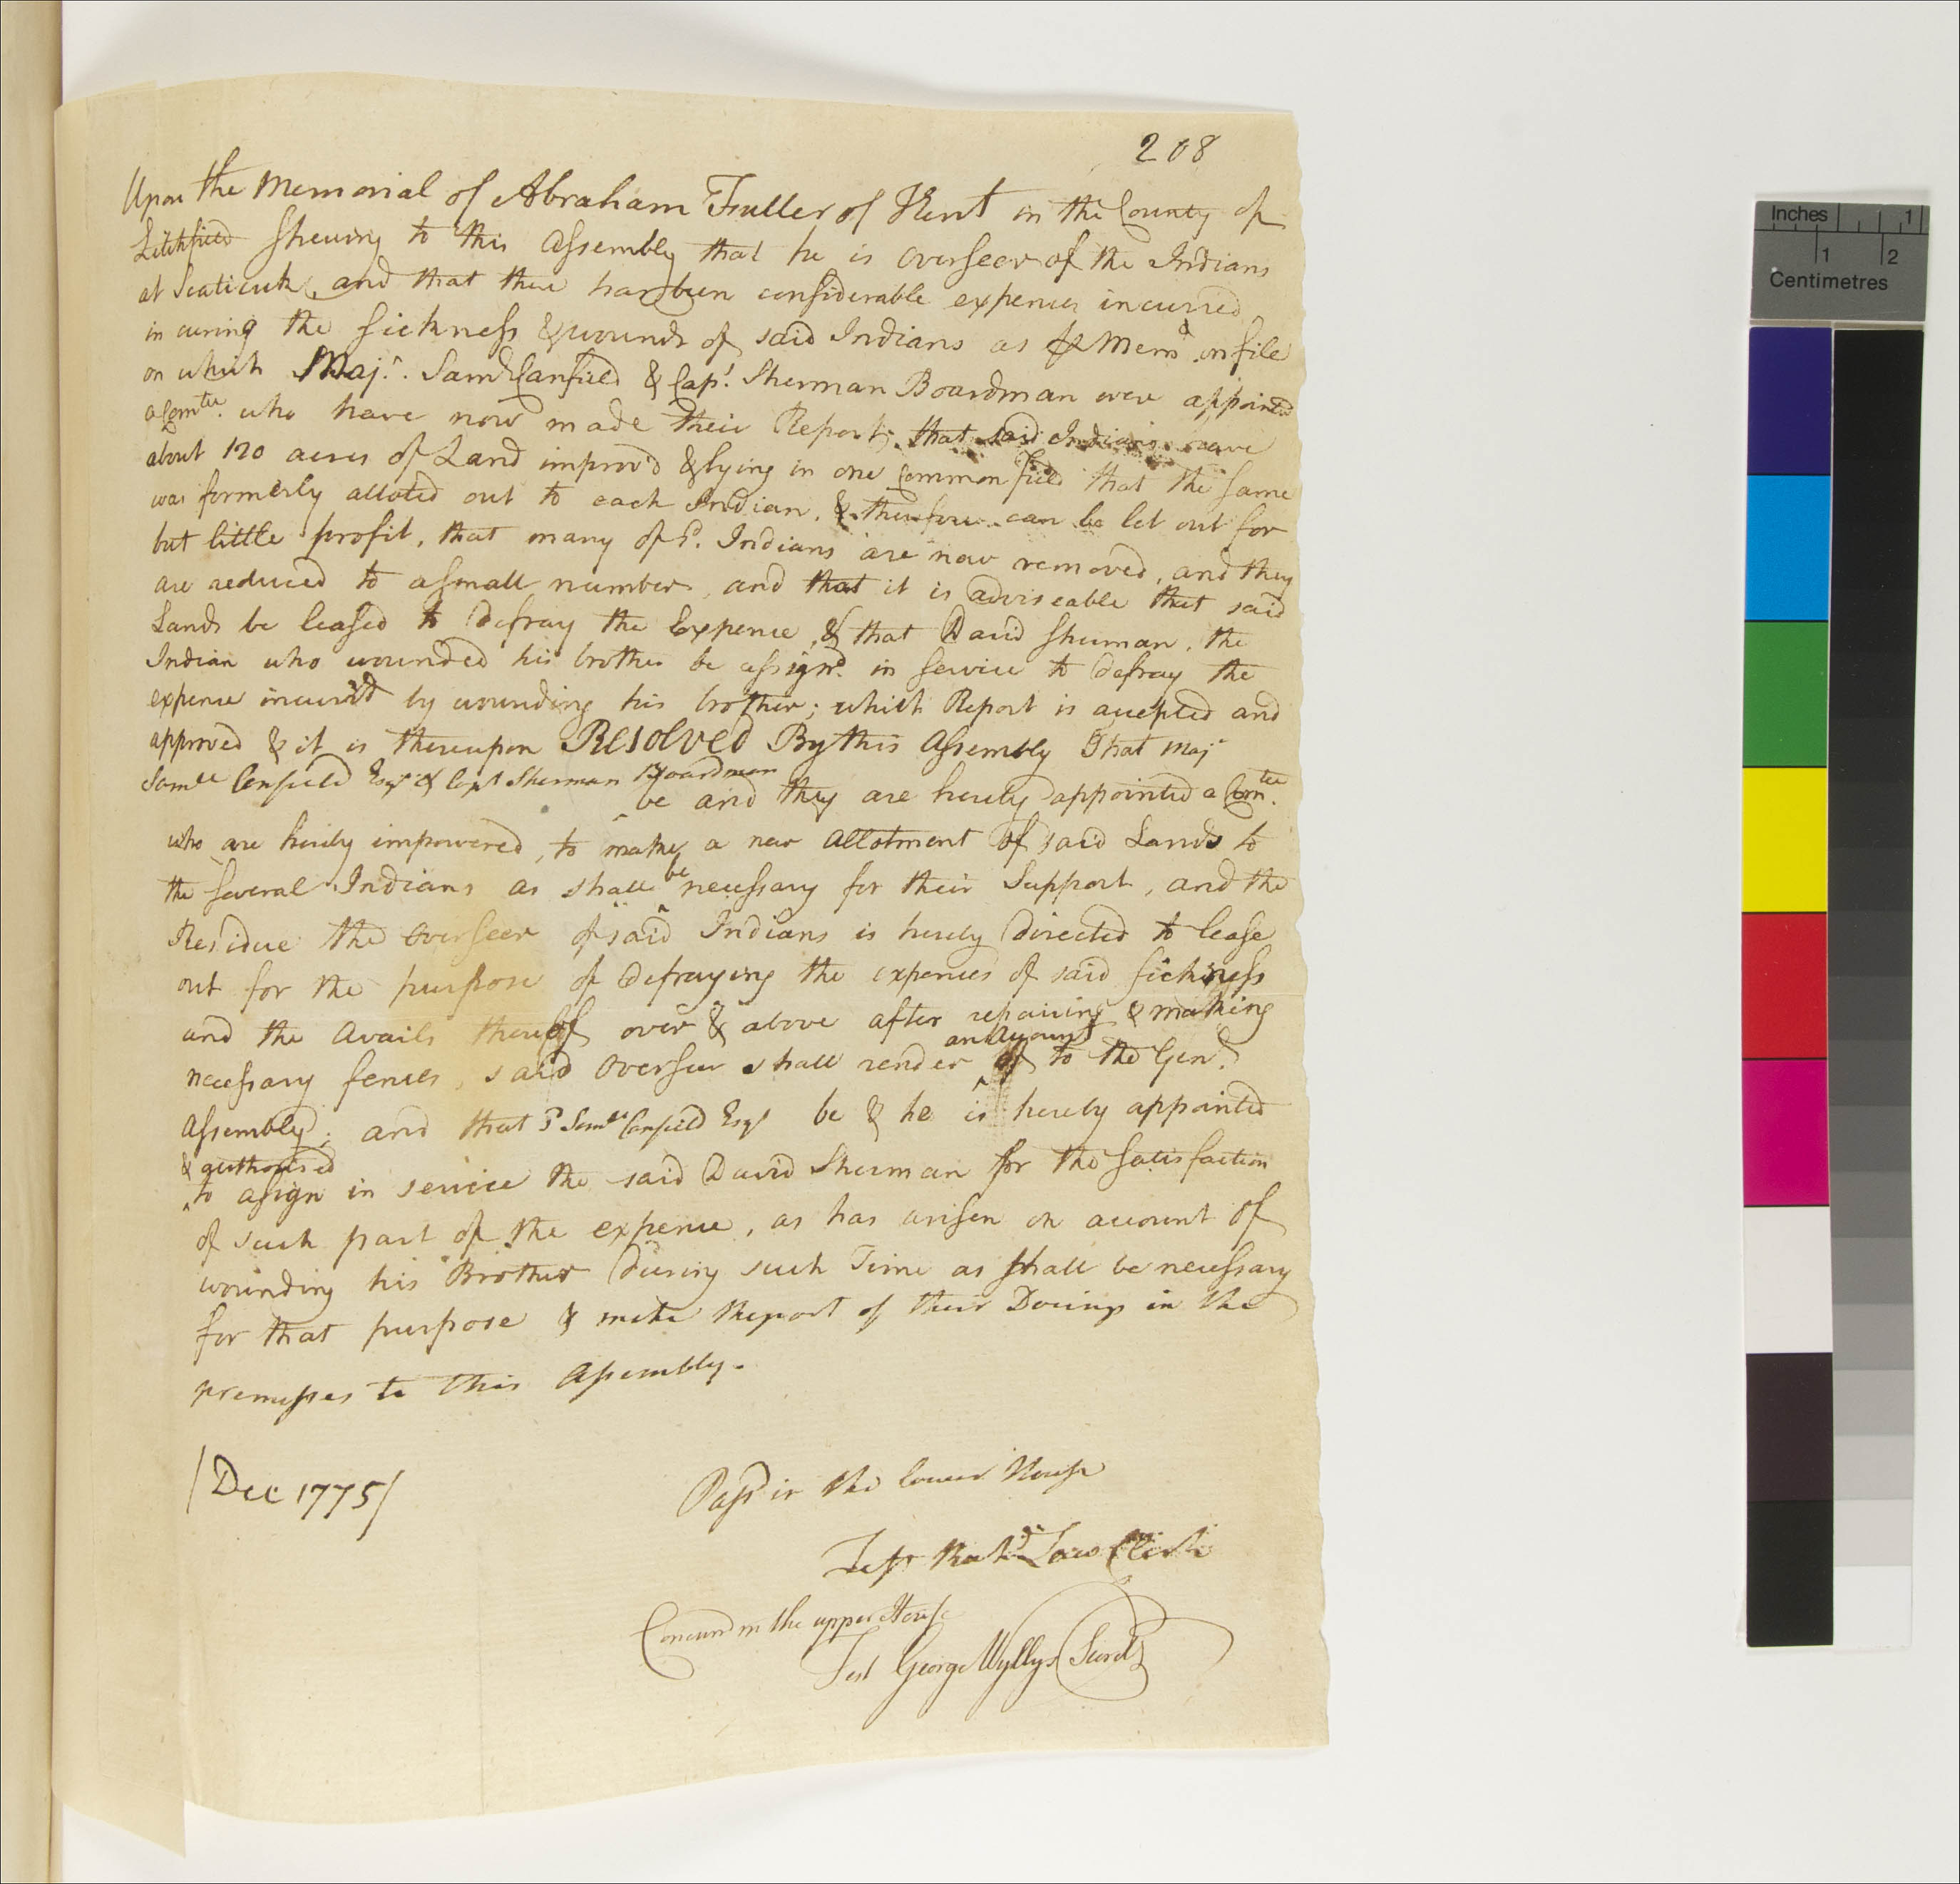 208
Upon the Memorial of Abraham Fuller of Kent in the County of
Litchfield Shewing to this Assembly that he is Overseer of the Indians
at Scaticuck, and that there has been considerable expences incurred
in curing the sickness & wounds of said Indians as pr Memd. on file
on which Majr. Samll Canfield & Capt. Sherman Boardman were appointed
a Comtee. who have now made their Report; that said Indians have
about 120 acres of Land improv'd & lying in one common field that the same
was formerly alloted out to each Indian, & therefore can be let out for
but little profit, that many of sd. Indians are now removed, and they
are reduced to a small number, and that it is adviseable that said
Lands be leased to defray the Expence, & that David Sherman, the
Indian who wounded his brother be assignd. in service to defray the
expence incurr'd by wounding his brother; which Report is accepted and
approved & it is thereupon Resolved By this Assembly That Majr
Samll Canfield Esqr & Capt Sherman Boardman
be and they are hereby appointed a Comtee.
who are hereby impowered, to make a new allotment of said Lands to
the several Indians as shall be necessary for their Support, and the
Residue the Overseer of said Indians is hereby directed to lease
out for the purpose of defraying the expences of said sickness
and the Avails thereof over & above after repairing & making
an Account
necessary fences, said Overseer shall render of to the Genl.
Assembly; and that sd Samll Canfield Esqr be & he is hereby appointed
& authorised
to assign in service the said David Sherman for the satisfaction
of such part of the expence, as has arisen on account of
wounding his Brother during such Time as shall be necessary
for that purpose & make Report of their Doings in the
premisses to this Assembly.
/Dec 1775/
Passd in the lower House
Test Richd Law Clerk
Concurrd in the upper House
Test George Wyllys Secrety
Inches 1
1 2
Centimetres